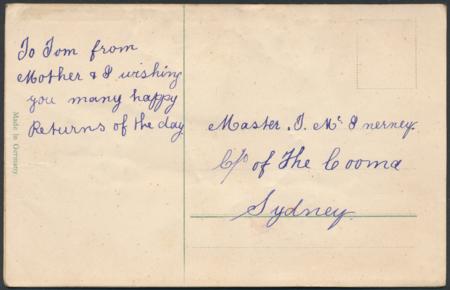 To Tom from
Mother & I wishing
you many happy
Returns of the day
Master. T. Mc Inerney.
C/o of The Cooma
Sydney.
Made in Germany